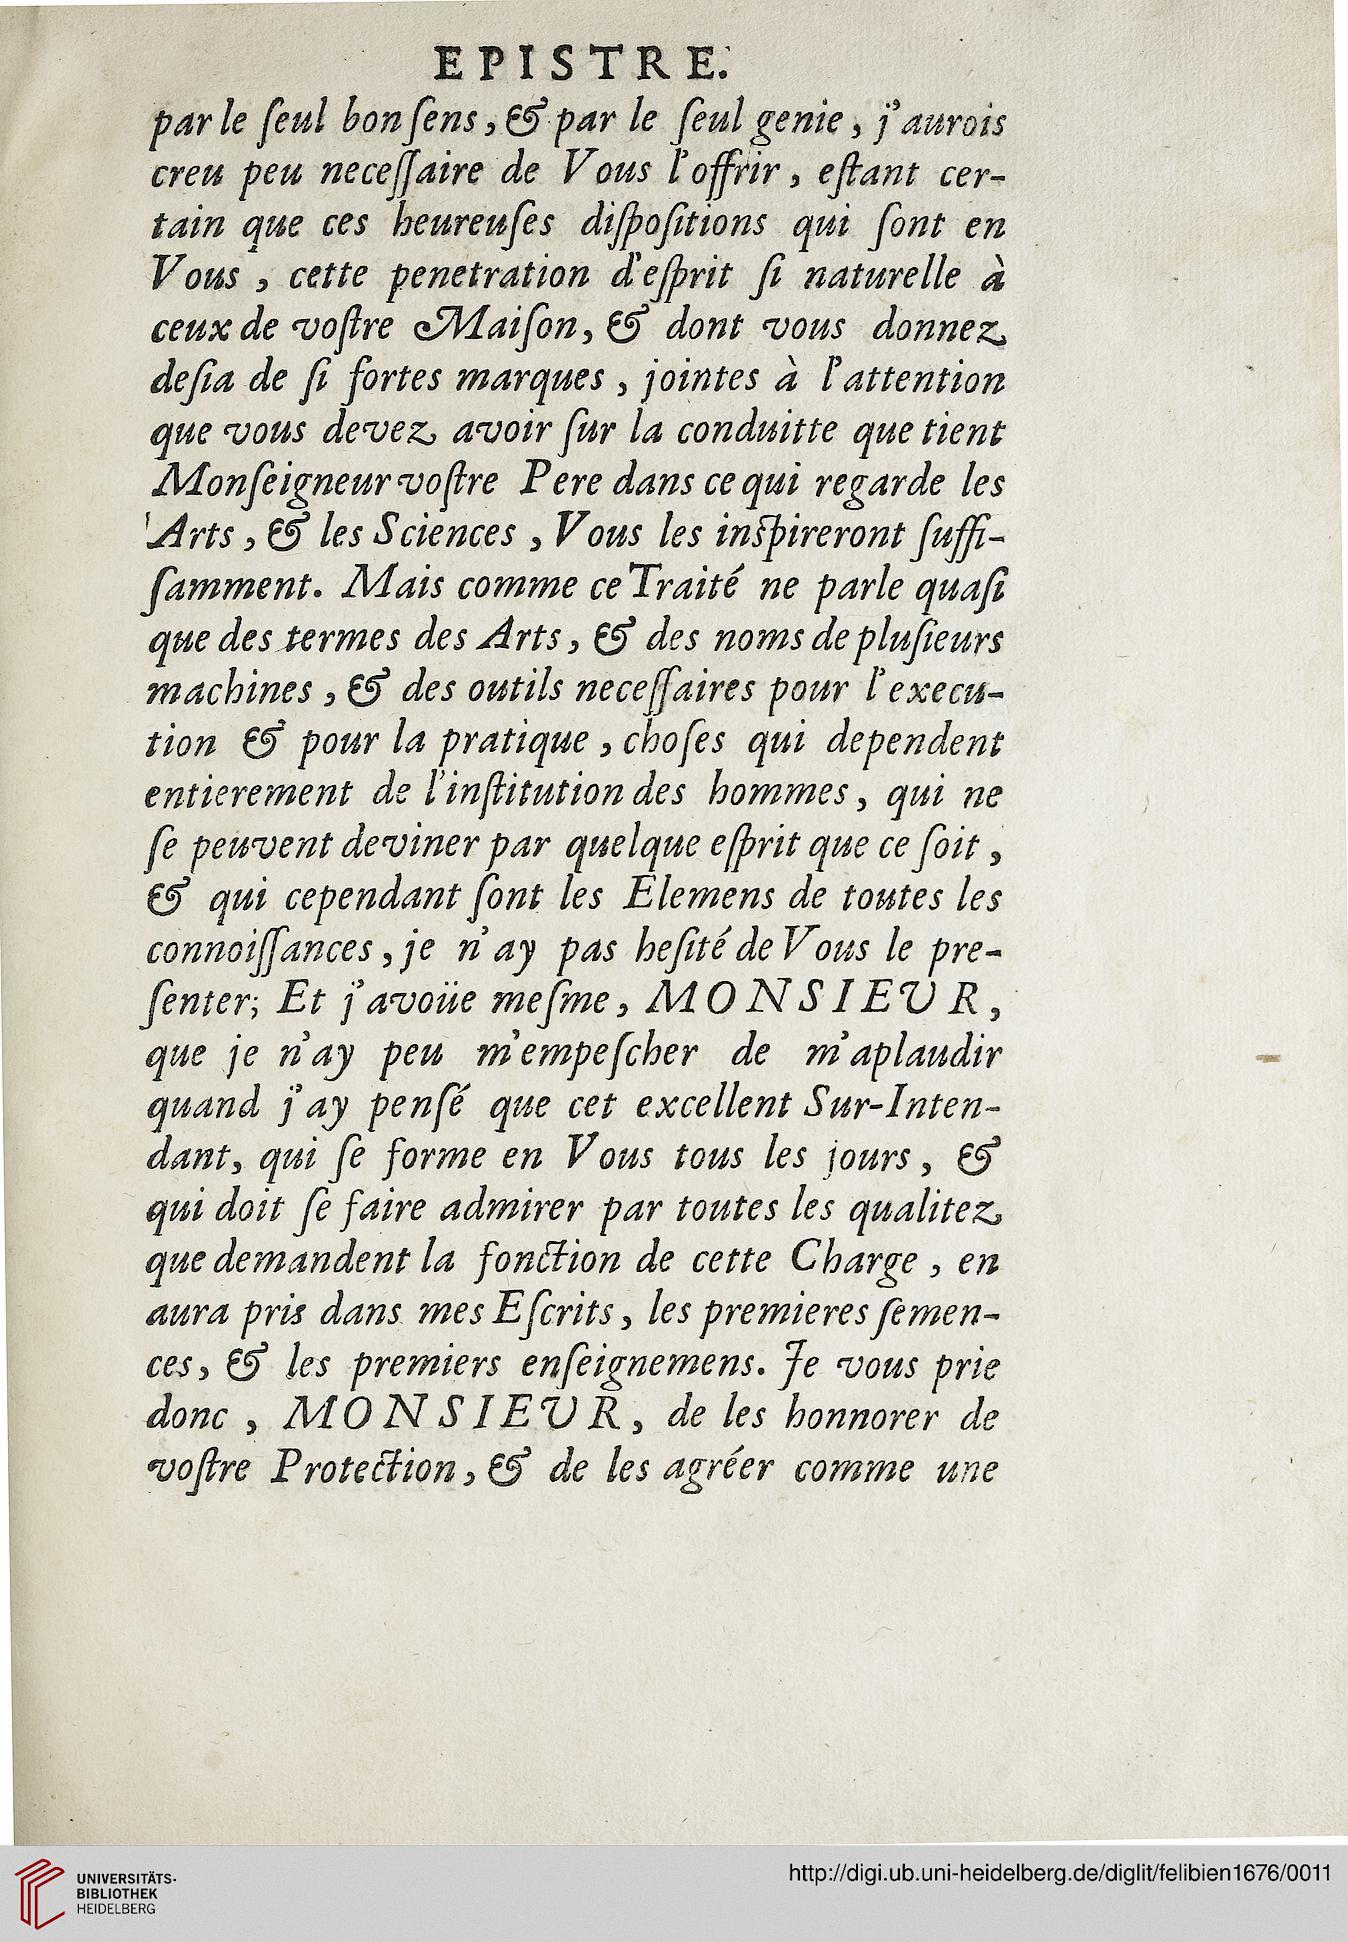 EPISTRE.
par le ſeul bon ſens, & par le ſeul genie, j'aurois
creu peu neceſſaire de Vous l'offrir, eſtant cer-
tain que ces heureuſes diſpoſitions qui ſont en
Vous, cette penetration d'eſprit ſi naturelle à
ceux de voſtre Maiſon, & dont vous donnez
deſia de ſi fortes marques, jointes à l'attention
que vous devez avoir ſur la conduitte que tient
Monſeigneur voſtre Pere dans ce qui regarde les
Arts, & les Sciences, Vous les inſpireront ſuffi-
ſamment. Mais comme ce Traité ne parle quaſi
que des termes des Arts, & des noms de pluſieurs
machines, & des outils neceſſaires pour l'execu-
tion & pour la pratique, choſes qui dependent
entierement de l'inſtitution des hommes, qui ne
ſe peuvent deviner par quelque eſprit que ce ſoit,
& qui cependant ſont les Elemens de toutes les
connoiſſances, je n'ay pas heſité de Vous le pre-
ſenter; Et j'avoüe meſme, MONSIEUR,
que je n'ay peu m'empeſcher de m'aplaudir
quand j'ay penſé que cet excellent Sur-Inten-
dant, qui ſe forme en Vous tous les jours, &
qui doit ſe faire admirer par toutes les qualitez
que demandent la fonction de cette Charge, en
aura pris dans mes Eſcrits, les premieres ſemen-
ces, & les premiers enſeignemens. Je vous prie
donc, MONSIEUR, de les honnorer de
voſtre Protection, & de les agréer comme une
UNIVERSITÄTS-
BIBLIOTHEK
HEIDELBERG
http://digi.ub.uni-heidelberg.de/diglit/felibien1676/0011